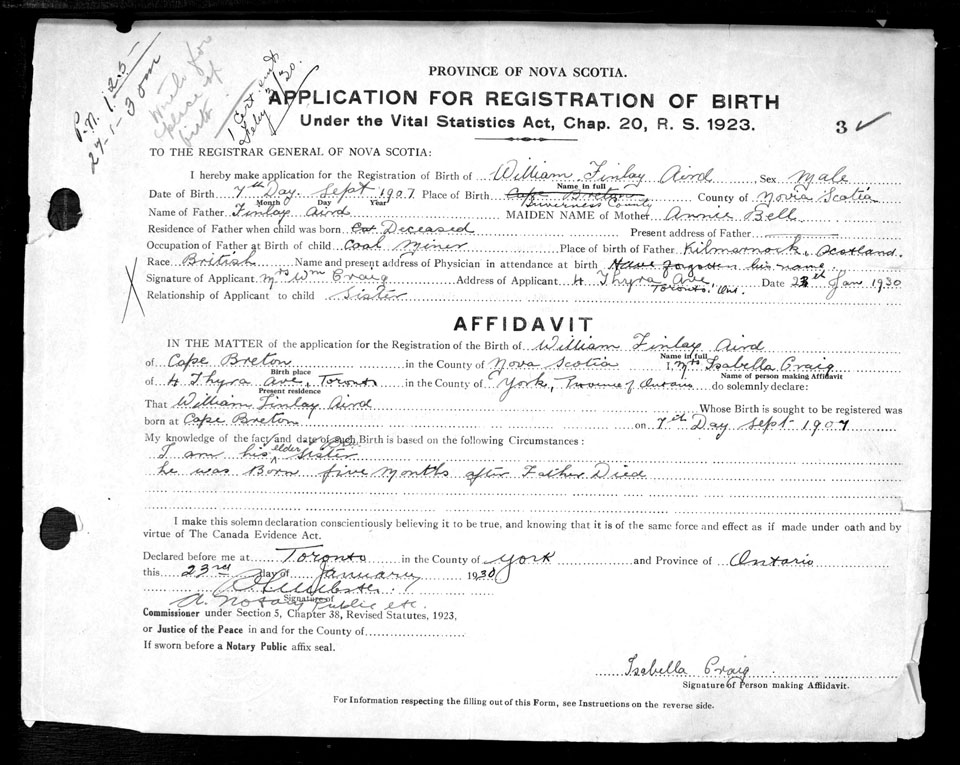 P.N. 1.25
27-1-30 om
Write for
place of
birth
1 Cert. emd
Feby 3/30.
PROVINCE OF NOVA SCOTIA.
APPLICATION FOR REGISTRATION OF BIRTH
Under the Vital Statistics Act, Chap. 20, R. S. 1923.
3 ✓
TO THE REGISTRAR GENERAL OF NOVA SCOTIA:
I hereby make application for the Registration of Birth of William Finlay Aird Sex Male
Name in full
Date of Birth 7th Day Sept 1907 Place of Birth Cape Breton County of Nova Scotia
Month Day Year Inverness County
Name of Father Finlay Aird MAIDEN NAME of Mother Annie Bell
Residence of Father when child was born Deceased Present address of Father
Occupation of Father at Birth of child Coal Miner Place of birth of Father Kilmarnock, Scotland.
Race British Name and present address of Physician in attendance at birth Have forgotten his name.
Signature of Applicant Mrs Wm Craig Address of Applicant 4 Thyra Ave Date 23rd Jan 1930
Toronto, Ont.
Relationship of Applicant to child Sister
AFFIDAVIT
IN THE MATTER of the application for the Registration of the Birth of William Finlay Aird
Name in full
of Cape Breton in the County of Nova Scotia I, Mrs Isabella Craig
Birth place Name of person making Affidavit
of 4 Thyra Ave, Toronto in the County of York, Province of Ontario do solemnly declare:
Present residence
That William Finlay Aird Whose Birth is sought to be registered was
born at Cape Breton on 7th Day Sept 1907
My knowledge of the fact and date of such Birth is based on the following Circumstances:
I am his elder Sister
he was Born five months after Father Died
I make this solemn declaration conscientiously believing it to be true, and knowing that it is of the same force and effect as if made under oath and by
virtue of The Canada Evidence Act.
Declared before me at Toronto in the County of York and Province of Ontario
this 23rd day of January 1930
Signature of
A. Notary Public etc.
Commissioner under Section 5, Chapter 38, Revised Statutes, 1923,
or Justice of the Peace in and for the County of
If sworn before a Notary Public affix seal.
Isabella Craig
Signature of Person making Affidavit.
For Information respecting the filling out of this Form, see Instructions on the reverse side.